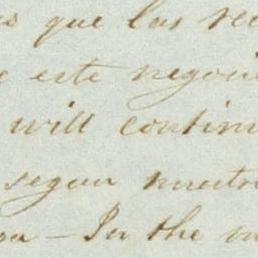 s que las re
e este negoci
will contin
segun nuestr
 — In the m